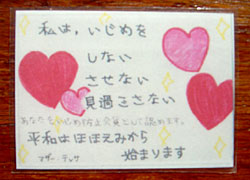 私は、いじめを
しない
させない
見過ごさない
あなたをいじめ防止会員として認めます。
平和はほほえみから
始まります
マザー・テレサ